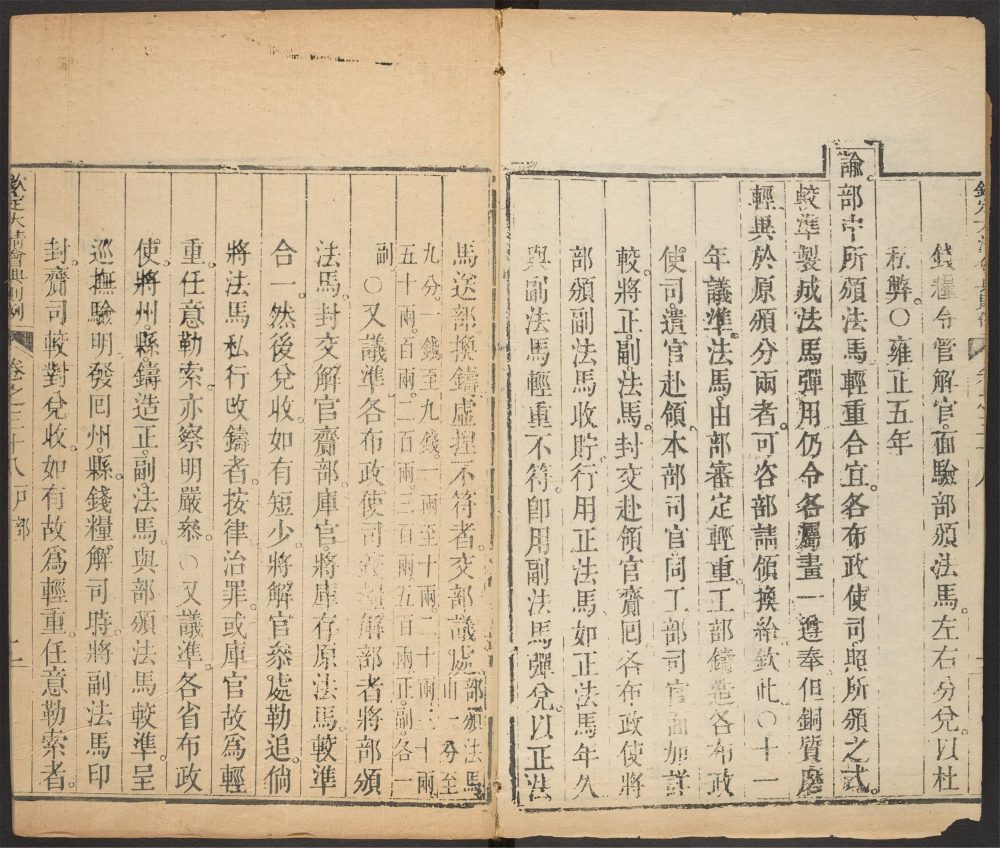 錢糧令管解官。面驗部頒法馬。左右分兌。以杜
私弊。〇雍正五年
諭部中所頒法馬。輕重合宜。各布政使司照所頒之式。
較準製成法馬彈用。仍令各屬畫一遵奉。但銅質磨
輕。與於原頒分兩者。可咨部請領換給。欽此。〇十一
年議準。法馬。由部審定輕重。工部鑄造。各布政
使司。遣官赴領。本部司官同工部司官。面加詳
較。將正副法馬。封交赴領官齎回。各布政使將
部頒副法馬收貯。行用正法馬。如正法馬年久
與副法馬輕重不符。卽用副法馬彈兌。以正法
馬送部換鑄。虛捏不符者。交部議處。部頒法馬。
由一分至
九分。一錢至九錢。一兩至十兩。二十兩。三十兩。
五十兩。百兩。二百兩。三百兩。五百兩。正副各一
副。〇又議準。各布政使司 解部者。將部頒
法馬。封交解官齎部。庫官將庫存原法馬。較準
合一。然後兌收。如有短少。將解官叅處勒追。倘
將法馬私行改鑄者。按律治罪。或庫官故爲輕
重。任意勒索。亦察明嚴叅。〇又議準。各省布政
使。將州縣鑄造正副法馬。與部頒法馬較準。呈
巡撫驗明。發囘州縣。錢糧解司時。將副法馬印
封齎司。較對兌收。如有故爲輕重。任意勒索者。
欽定大清會典則例 卷之三十八 戶部